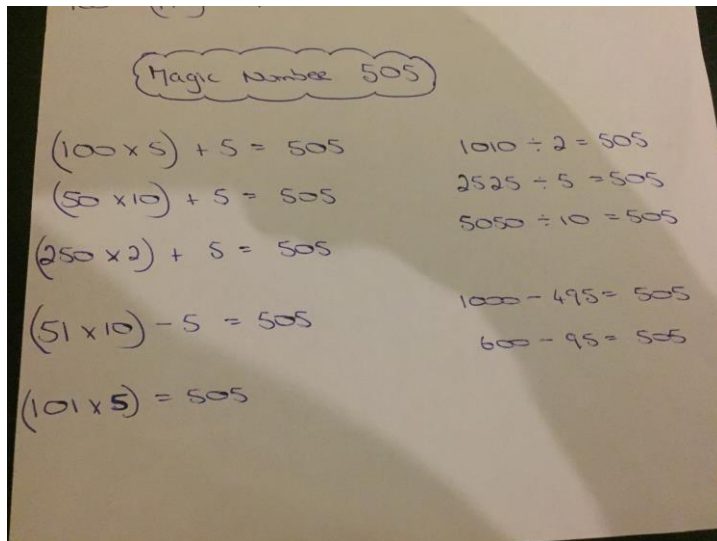 Magic Number 505
(100 x 5) + 5 = 505
(50 x 10) + 5 = 505
(250 x 2) + 5 = 505
(51 x 10) - 5 = 505
(101 x 5) = 505
1010 ÷ 2 = 505
2525 ÷ 5 = 505
5050 ÷ 10 = 505
1000 - 495 = 505
600 - 95 = 505